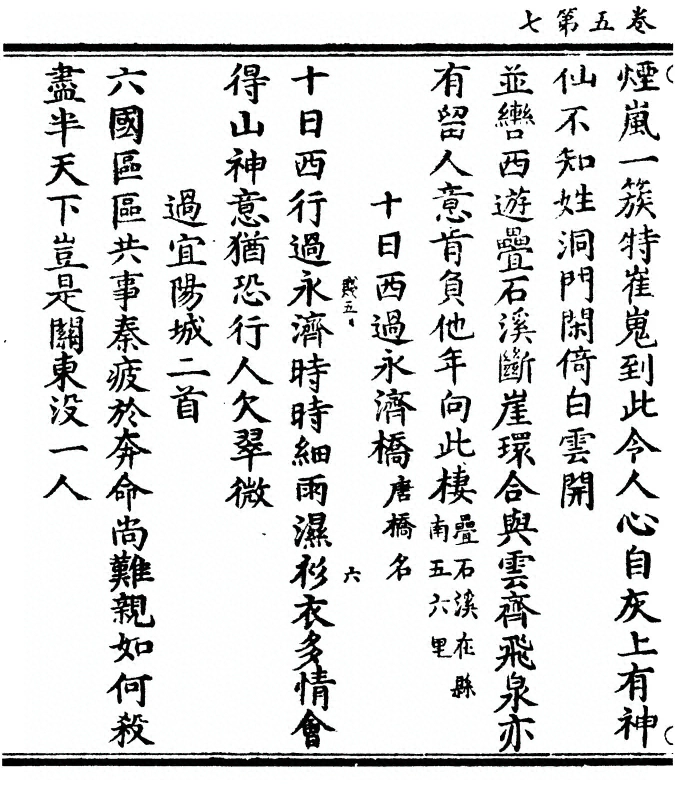 七第五卷
煙嵐一簇特崔嵬到此令人心自灰上有神
仙不知姓洞門閑倚白雲開
並轡西遊疊石溪斷崖環合與雲齊飛泉亦
有留人意肯負他年向此棲疊石溪在縣南五六里
十日西過永濟橋唐橋名
十日西行過永濟時時細雨濕衫衣多情會
得山神意猶恐行人欠翠微
過宜陽城二首
六國區區共事秦疲於奔命尚難親如何殺
盡半天下豈是關東没一人
六